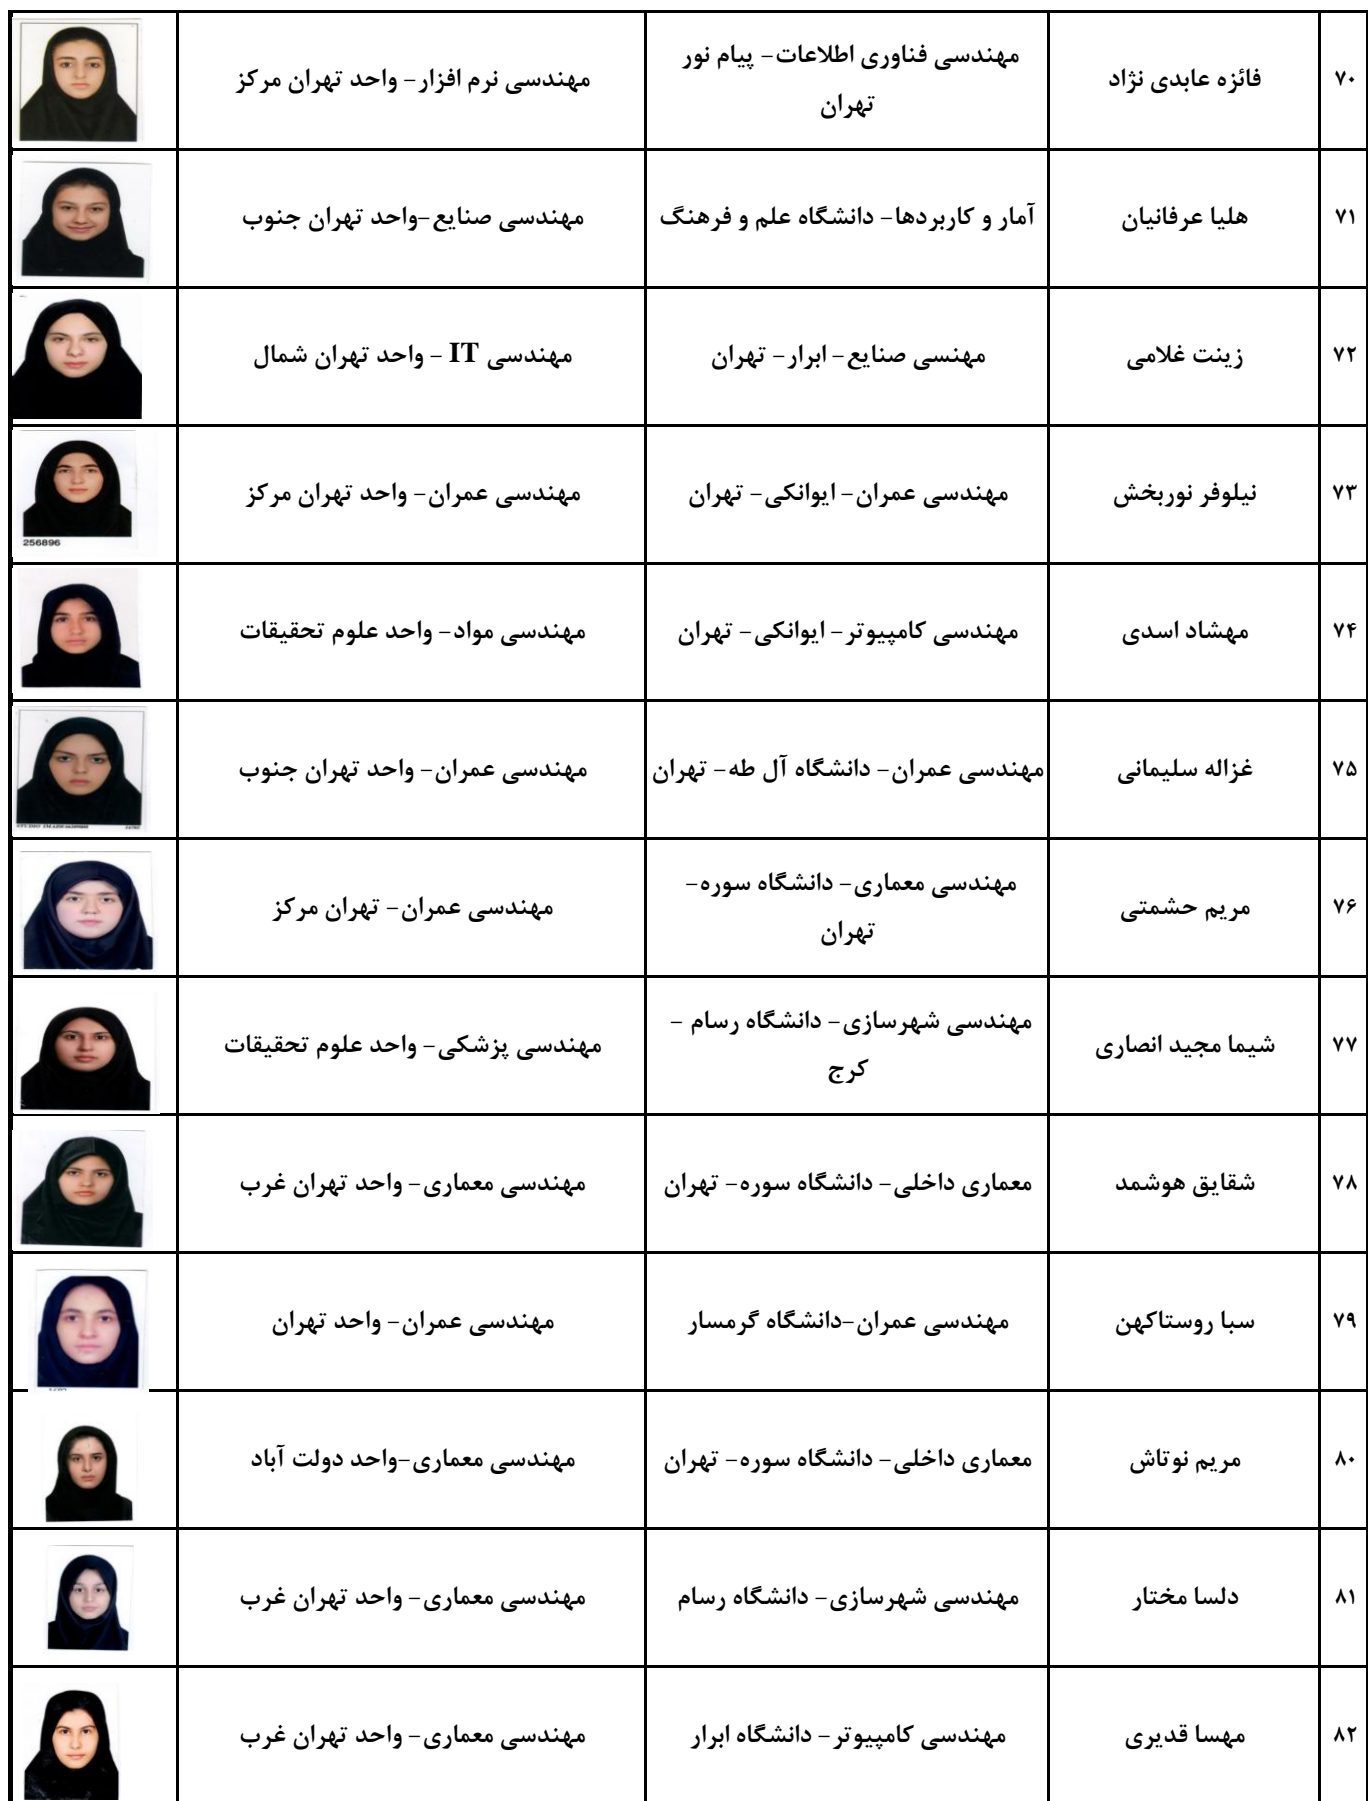 ۷۰ فائزه عابدی نژاد مهندسی فناوری اطلاعات- پیام نور مهندسی نرم افزار- واحد تهران مرکز
تهران
۷۱ هلیا عرفانیان آمار و کاربردها- دانشگاه علم و فرهنگ مهندسی صنایع-واحد تهران جنوب
۷۲ زینت غلامی مهنسی صنایع- ابرار- تهران مهندسی IT - واحد تهران شمال
۷۳ نیلوفر نوربخش مهندسی عمران- ایوانکی- تهران مهندسی عمران- واحد تهران مرکز
256896
۷۴ مهشاد اسدی مهندسی کامپیوتر- ایوانکی- تهران مهندسی مواد- واحد علوم تحقیقات
۷۵ غزاله سلیمانی مهندسی عمران- دانشگاه آل طه- تهران مهندسی عمران- واحد تهران جنوب
۷۶ مریم حشمتی مهندسی معماری- دانشگاه سوره- مهندسی عمران- تهران مرکز
تهران
۷۷ شیما مجید انصاری مهندسی شهرسازی- دانشگاه رسام - مهندسی پزشکی- واحد علوم تحقیقات
کرج
۷۸ شقایق هوشمد معماری داخلی- دانشگاه سوره- تهران مهندسی معماری- واحد تهران غرب
۷۹ سبا روستاکهن مهندسی عمران-دانشگاه گرمسار مهندسی عمران- واحد تهران
۸۰ مریم نوتاش معماری داخلی- دانشگاه سوره- تهران مهندسی معماری-واحد دولت آباد
۸۱ دلسا مختار مهندسی شهرسازی- دانشگاه رسام مهندسی معماری- واحد تهران غرب
۸۲ مهسا قدیری مهندسی کامپیوتر- دانشگاه ابرار مهندسی معماری- واحد تهران غرب